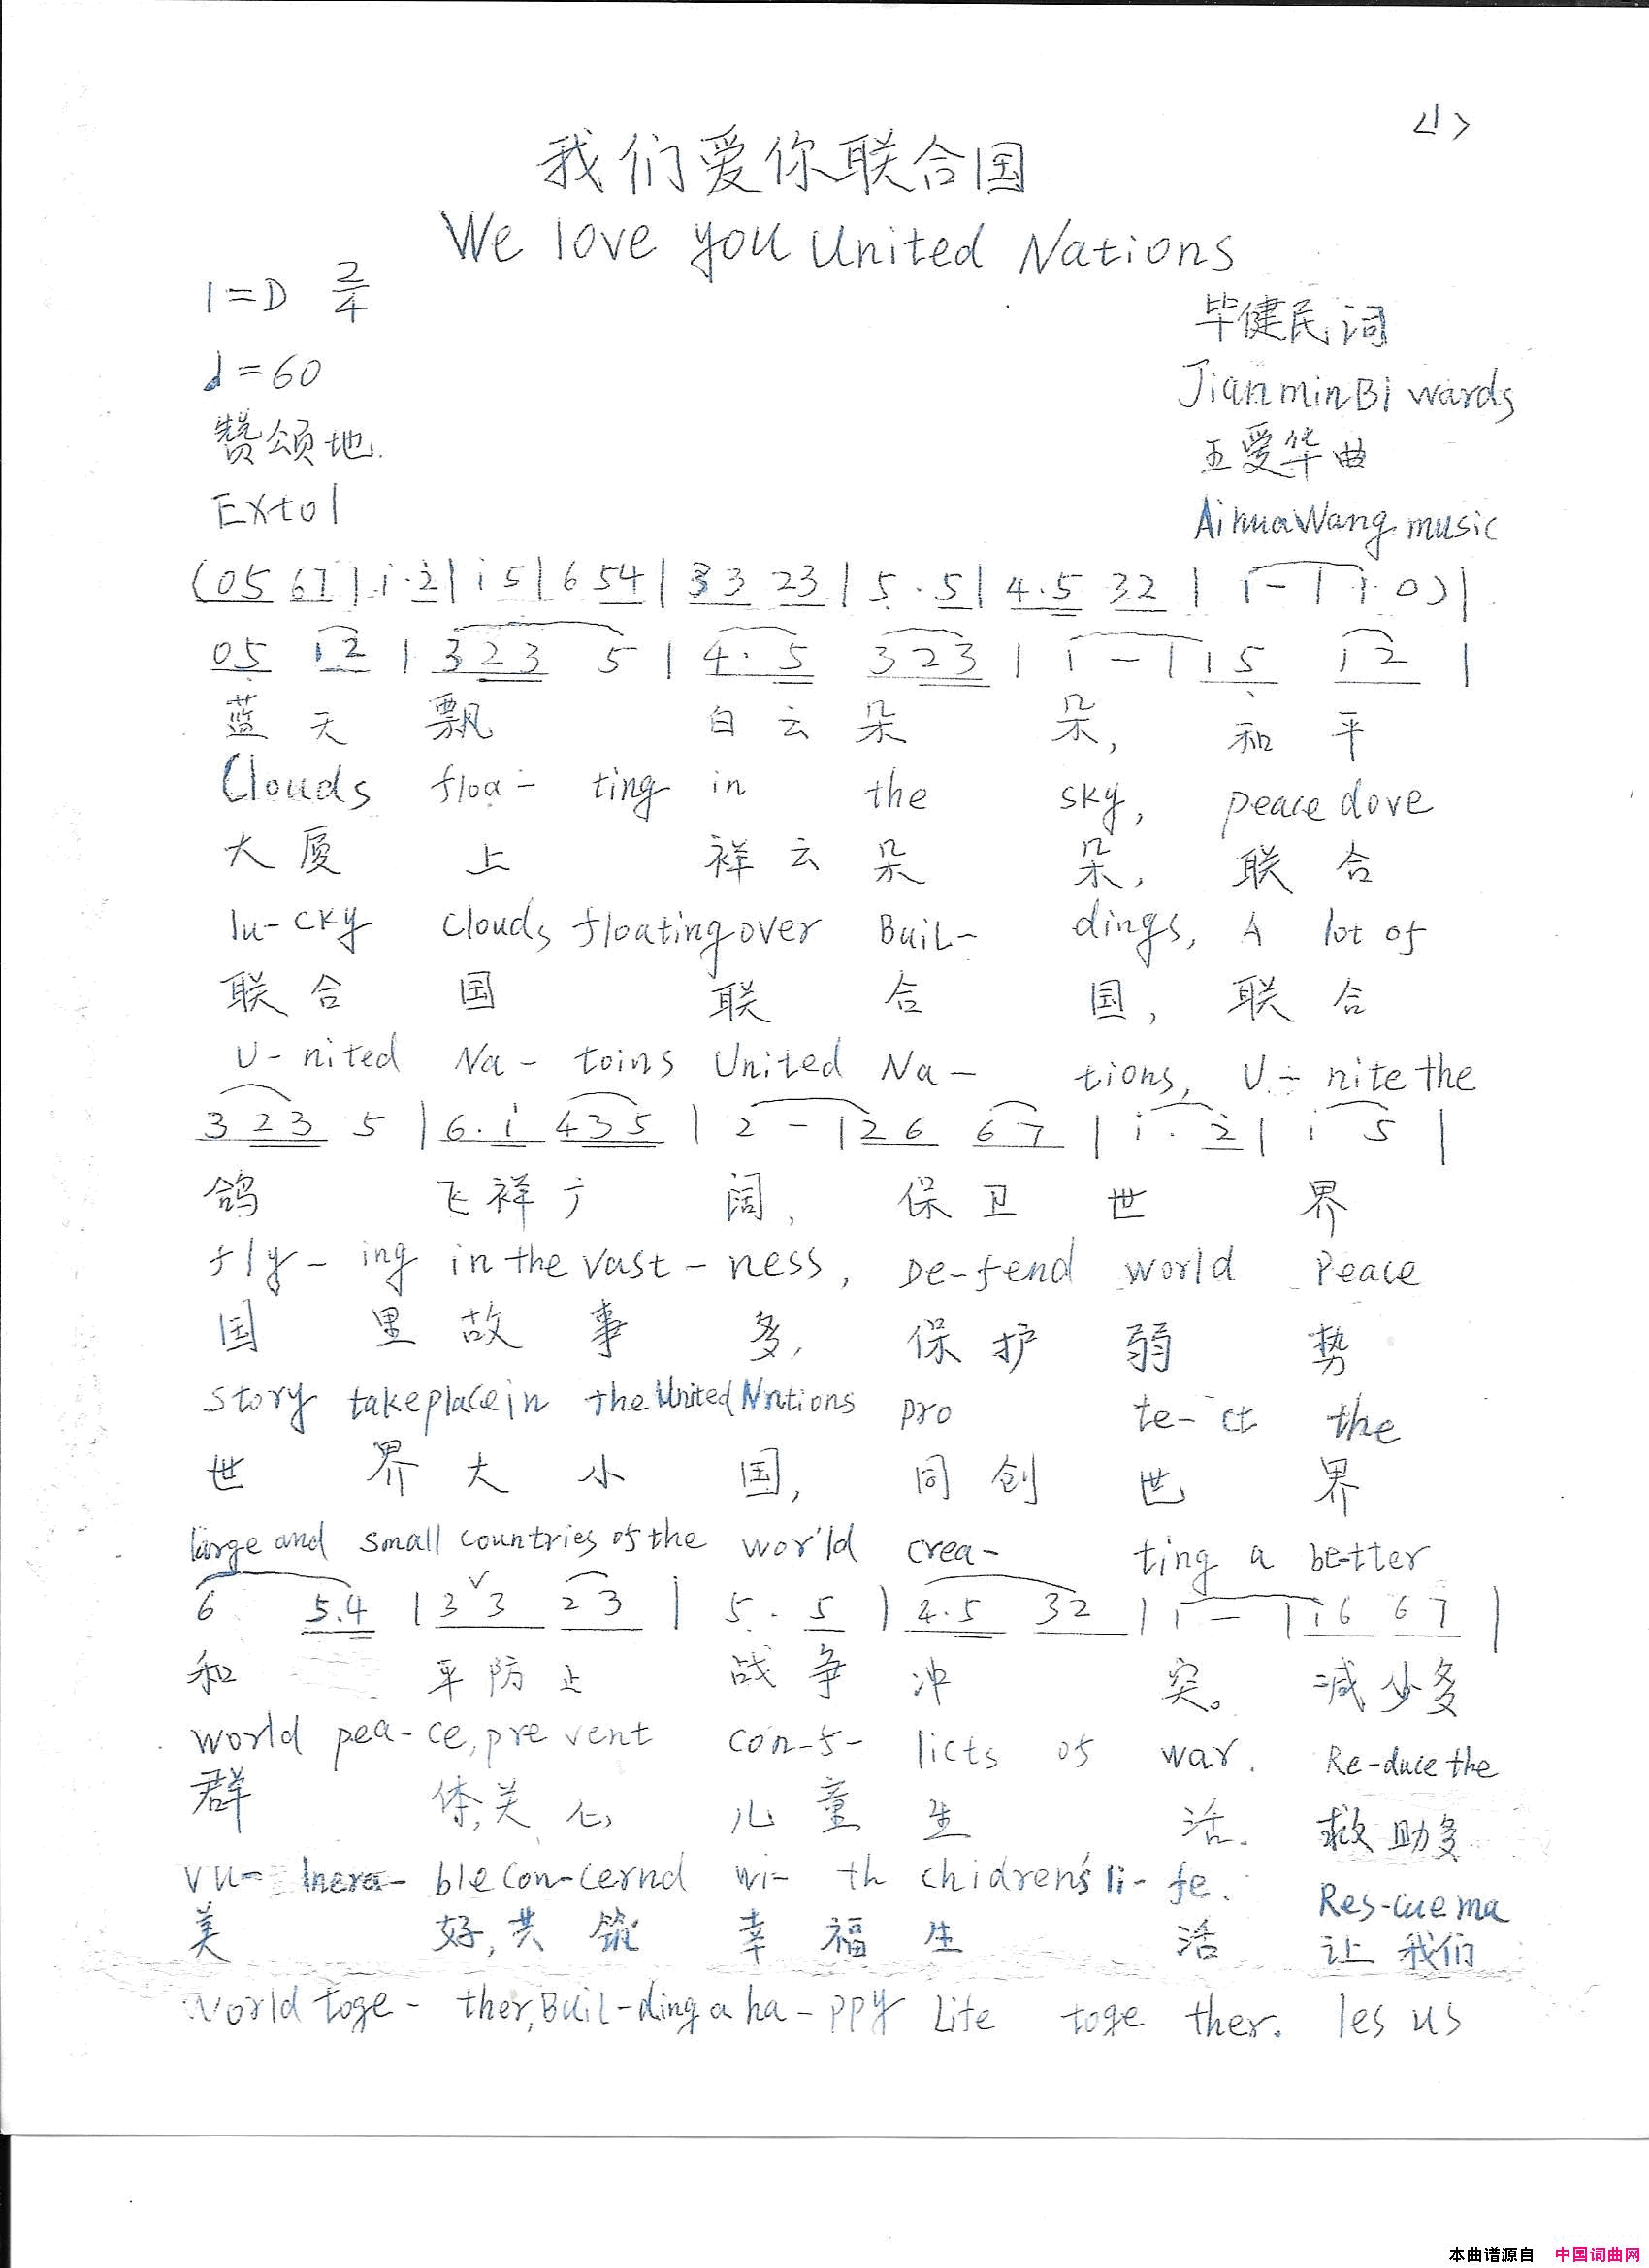 <1>
我们爱你联合国
We love you United Nations
1=D 2/4
毕健民词
♩=60
Jianmin Bi wards
赞颂地.
王爱华曲
Extol
Aihua Wang music
(05 67 | i·2 | i 5 | 6 54 | 33 23 | 5·5 | 4·5 32 | 1-|1 0) |
05 12 | 323 5 | 4·5 323 | 1-|15 12 |
蓝天飘 白云朵朵, 和平
Clouds floa-ting in the sky, peace dove
大厦上 祥云朵朵, 联合
lu-cky clouds floating over Buil-dings, A lot of
联合国 联合国, 联合
U-nited Na-toins United Na-tions, U-nite the
323 5 | 6·i 435 | 2-|26 67 | i·2 | i 5 |
鸽 飞祥广阔, 保卫世界
fly-ing in the vast-ness, De-fend world Peace
国里故事多, 保护弱势
story take place in the United Nntions pro te-ct the
世界大小国, 同创世界
large and small countries of the world crea-ting a be-tter
6 5.4 | 3 ˇ3 23 | 5·5 | 4·5 32 | 1-|i6 67 |
和平防止战争冲突。 减少多
world pea-ce, pre vent con-f-licts of war. Re-duce the
群体,关心儿童生活. 救助多
vu-lnera-ble con-cernd wi-th chidren's li-fe. Res-cue ma
美好,共筑幸福生活 让我们
World toge-ther, Buil-ding a ha-ppy Life toge ther. les us
本曲谱源自 中国词曲网